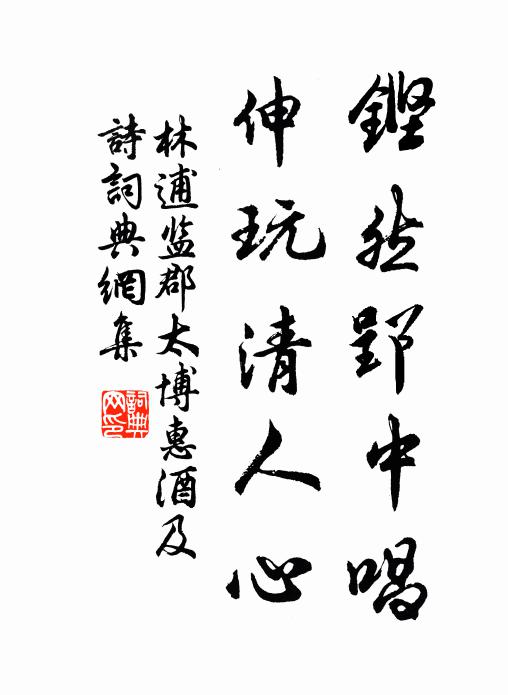 鏗然郢中唱
伸玩清人心
林逋监郡太博惠酒及
詩詞典網集
詞典
网印